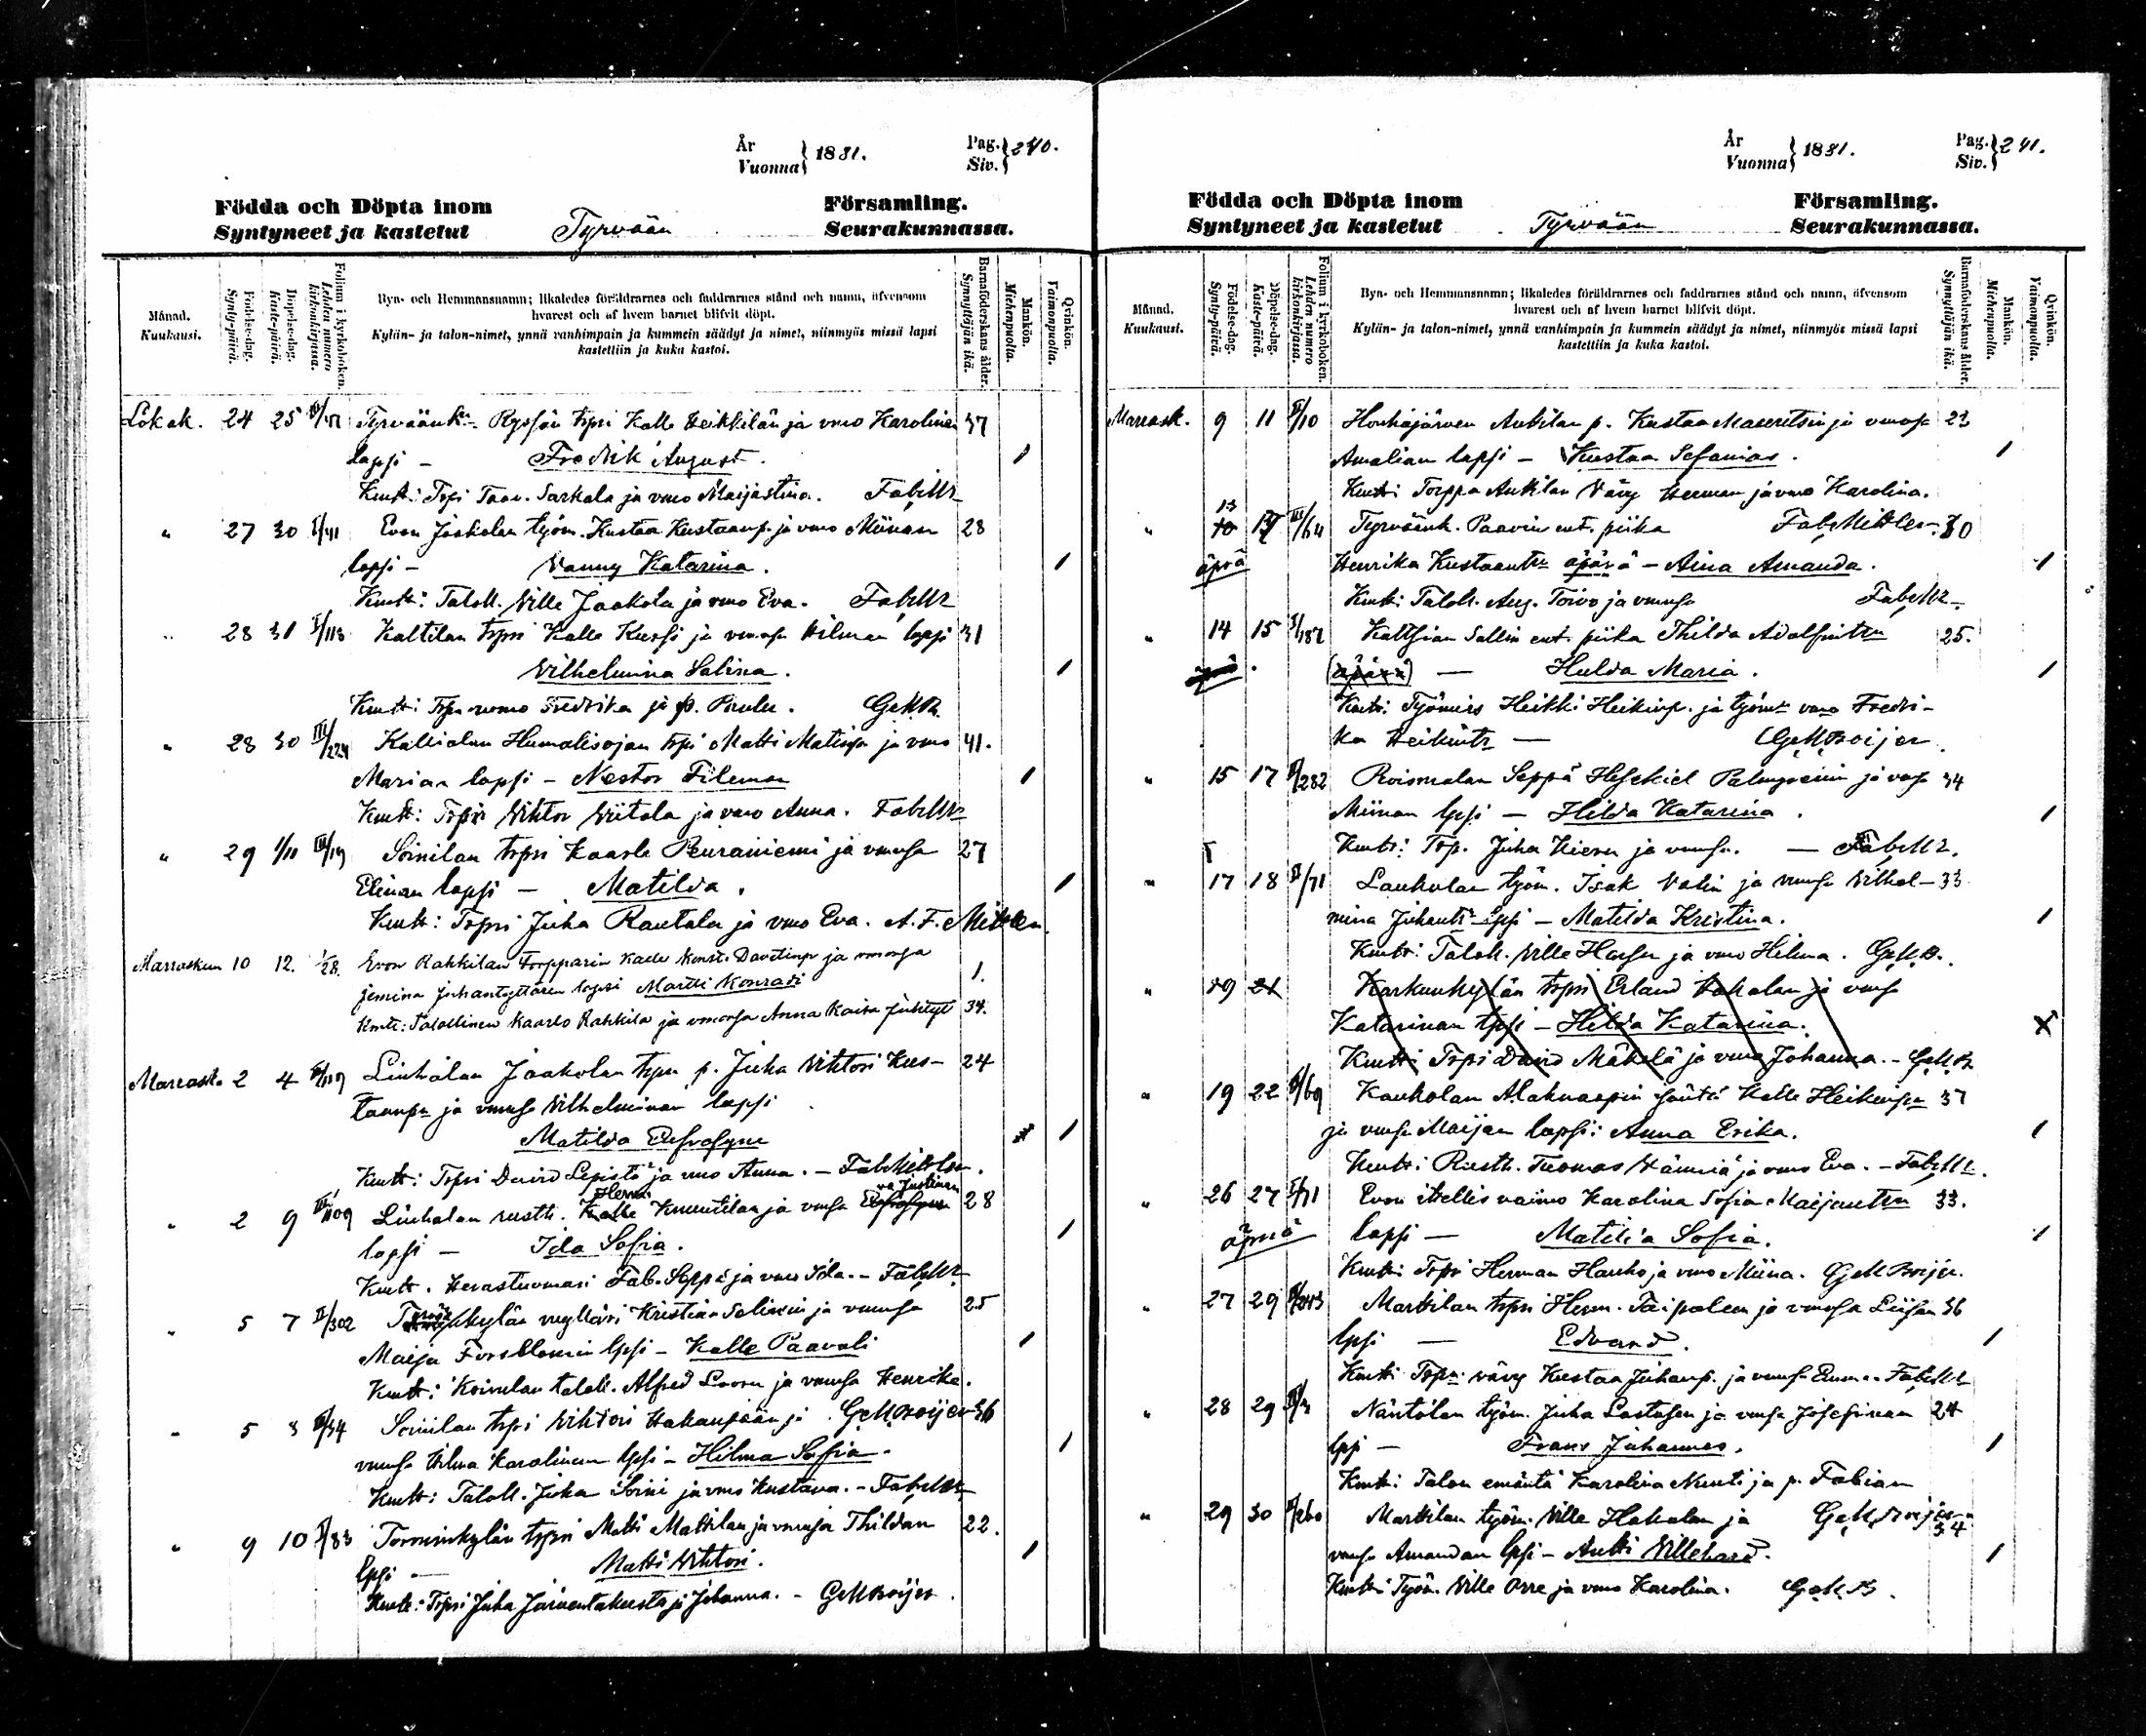 År
Vuonna } 1881.
Pag.
Siv. } 240.
Födda och Döpta inom Församling.
Syntyneet ja kastetut Tyrvään Seurakunnassa.
Månad.
Kuukausi.
Födelse-dag.
Synty-päivä.
Döpelse-dag.
Kaste-päivä.
Folium i kyrkoboken.
Lehden numero kirkonkirjassa.
Byn- och Hemmansnamn; likaledes föräldrarnes och faddrarnes stånd och namn, äfvensom
hvarest och af hvem barnet blifvit döpt.
Kylän- ja talon-nimet, ynnä vanhimpain ja kummein säädyt ja nimet, niinmyös missä lapsi
kastettiin ja kuka kastoi.
Barnaföderskans ålder.
Synnyttäjän ikä.
Mankön.
Miehenpuolta.
Qvinkön.
Vaimonpuolta.
Lokak. 24 25 Tyrväänk. Ryssän trpri Kalle Heikkilän ja vmo Karolinan 37
lapsi - Fredrik August. 1
Kmtt: Trpri Taav. Sarkala ja vmo Maijastina. Fab.Mr
" 27 30 I/41 Evon Jaakolan työm. Kustaa Kustaanp. ja vmo Miinan 28
lapsi - Vanny Katarina. 1
Kmtt: Taloll. Ville Jaakola ja vmo Eva. Fab.Mr
" 28 31 I/113 Kaltilan trpri Kalle Kurssi ja vmonsa Hilman lapsi 31
Vilhelmina Sabina. 1
Kmtt: Trpn vmo Fredrika ja p. Paulu. G.M.B.
" 28 30 III/224 Kallialan Humalisojan trpri Matti Matinp. ja vmo 41.
Marian lapsi - Nestor Filemon 1
Kmtt: Trpri Vihtor Viitala ja vmo Anna. Fab.Mr
" 29 1/11 III/19 Soinilan trpri Kaarle Peuraniemi ja vmonsa 27
Elinan lapsi - Matilda. 1
Kmtt: Trpri Juha Rautala ja vmo Eva. A.F. Mittler.
Marraskuu 10 12. /28. Evon Rahkilan Torpparin Kalle Konst. Davidinp. ja vmonsa 1.
Jemina Juhantyttären lapsi Martti Konradi
Kmtt: Talollinen Kaarlo Rahkila ja vmonsa Anna Kaisa Juhtytt 34.
Marrask. 2 4 /119 Liuhalan Jaakolan trpn p. Juha Vihtori Kus- 24
taanpn ja vmonsa Vilhelminan lapsi
Matilda Eufrosyne 1
Kmtt: Trpri David Lepistö ja vmo Anna. - Fab.Mittler.
" 2 9 III/109 Liuhalan rustth. Herm. Knuutilan ja vmonsa Eva Justinan 28
lapsi - Ida Sofia. 1
Kmtt. Herastuomari Fab. Seppä ja vmo Ida. - Fab.Mr
" 5 7 II/302 kylän mylläri Kristian Salinin ja vmonsa 25
Maija Forsblomin lpsi - Kalle Paavali 1
Kmtt: Koivulan taloll. Alfred Looru ja vmonsa Henrika.
" 5 8 /34 Soinilan trpri Vihtori Hakanpään ja G.M.Boijer 36
vmonsa Hilma Karolinan lpsi - Hilma Sofia. 1
Kmtt: Taloll. Juha Soini ja vmo Kustava. - Fab.Mr
" 9 10 /83 Tomminkylän trpri Matti Mattilan ja vmonsa Thildan 22.
lpsi - Matti Vihtori. 1
Kmtt: Trpri Juha Järventakusta ja Johanna. - G.M.Boijer.
År
Vuonna } 1881.
Pag.
Siv. } 241.
Födda och Döpta inom Församling.
Syntyneet ja kastetut Tyrvään Seurakunnassa.
Månad.
Kuukausi.
Födelse-dag.
Synty-päivä.
Döpelse-dag.
Kaste-päivä.
Folium i kyrkoboken.
Lehden numero kirkonkirjassa.
Byn- och Hemmansnamn; likaledes föräldrarnes och faddrarnes stånd och namn, äfvensom
hvarest och af hvem barnet blifvit döpt.
Kylän- ja talon-nimet, ynnä vanhimpain ja kummein säädyt ja nimet, niinmyös missä lapsi
kastettiin ja kuka kastoi.
Barnaföderskans ålder.
Synnyttäjän ikä.
Mankön.
Miehenpuolta.
Qvinkön.
Vaimonpuolta.
Marrask. 9 11 II/10 Houhajärven Anttilan p. Kustaa Mauritsin ja vmonsa 23
Amalian lapsi - Kustaa Sefanias. 1
Kmtt: Torppa Anttilan Väng Herman ja vmo Karolina.
" 13 17 III/64 Tyrväänk. Paavin ent. piika Fab.Mittler. 30
äprä Henrika Kustaantr äpärä - Aina Amanda. 1
Kmtt: Taloll. Aug. Toivo ja vmonsa Fab.Mr.
" 14 15 I/187 Kaltsian Sallin ent. piika Thilda Adolfintr 25.
(äpärä) - Hulda Maria. 1
Kmtt: Työmies Heikki Heikinp. ja työmn vmo Fredri-
ka Heikintr - G.M.Boijer.
" 15 17 II/282 Roismalan Seppä Hesekiel Palmgrenin ja vmonsa 34
Miinan lpsi - Hilda Katarina. 1
Kmtt: Trp. Juha Hieru ja vmonsa. - Fab.Mr.
" 17 18 II/71 Laukulan työm. Isak Valin ja vmonsa Vilhel- 33
mina Juhantr lpsi - Matilda Kristina. 1
Kmtt: Taloll. Ville Hansu ja vmo Hilma. G.M.B.
" 19 21 Karkunkylän trpri Erland Hakalan ja vmonsa
Katarinan lpsi - Hilda Katarina. X
Kmtt: Trpri David Mäkelä ja vmo Johanna. - G.M.B.
" 19 22 II/69 Kaukolan Alaknaapin Kalle Heikinpn 37
ja vmonsa Maijan lapsi: Anna Erika. 1
Kmtt: Rusth. Tuomas Hänniä ja vmo Eva. - Fab.Mr.
" 26 27 I/71 Evon itellis vaimo Karolina Sofia Maijantrn 33.
äprä lapsi - Matilda Sofia. 1
Kmtt: Trpri Herman Hauho ja vmo Miina. G.M.Boijer.
" 27 29 Marttilan trpri Herm. Taipaleen ja vmonsa Liisan 36
lpsi - Edvard. 1
Kmtt: Trpn väng Kustaa Juhanp. ja vmonsa Emma. Fab.Mr
" 28 29 II/ Näntölän työm. Juha Lastusen ja vmonsa Josefinan 24
lpsi - Frans Juhannes. 1
Kmtt: Talon emäntä Karolina Nunti ja p. Fabian
" 29 30 II/260 Marttilan työm. Ville Hakalan ja G.M.Boijer. 34
vmonsa Amandan lpsi - Antti Villehard. 1
Kmtt: Työm. Ville Orre ja vmo Karolina. G.M.B.